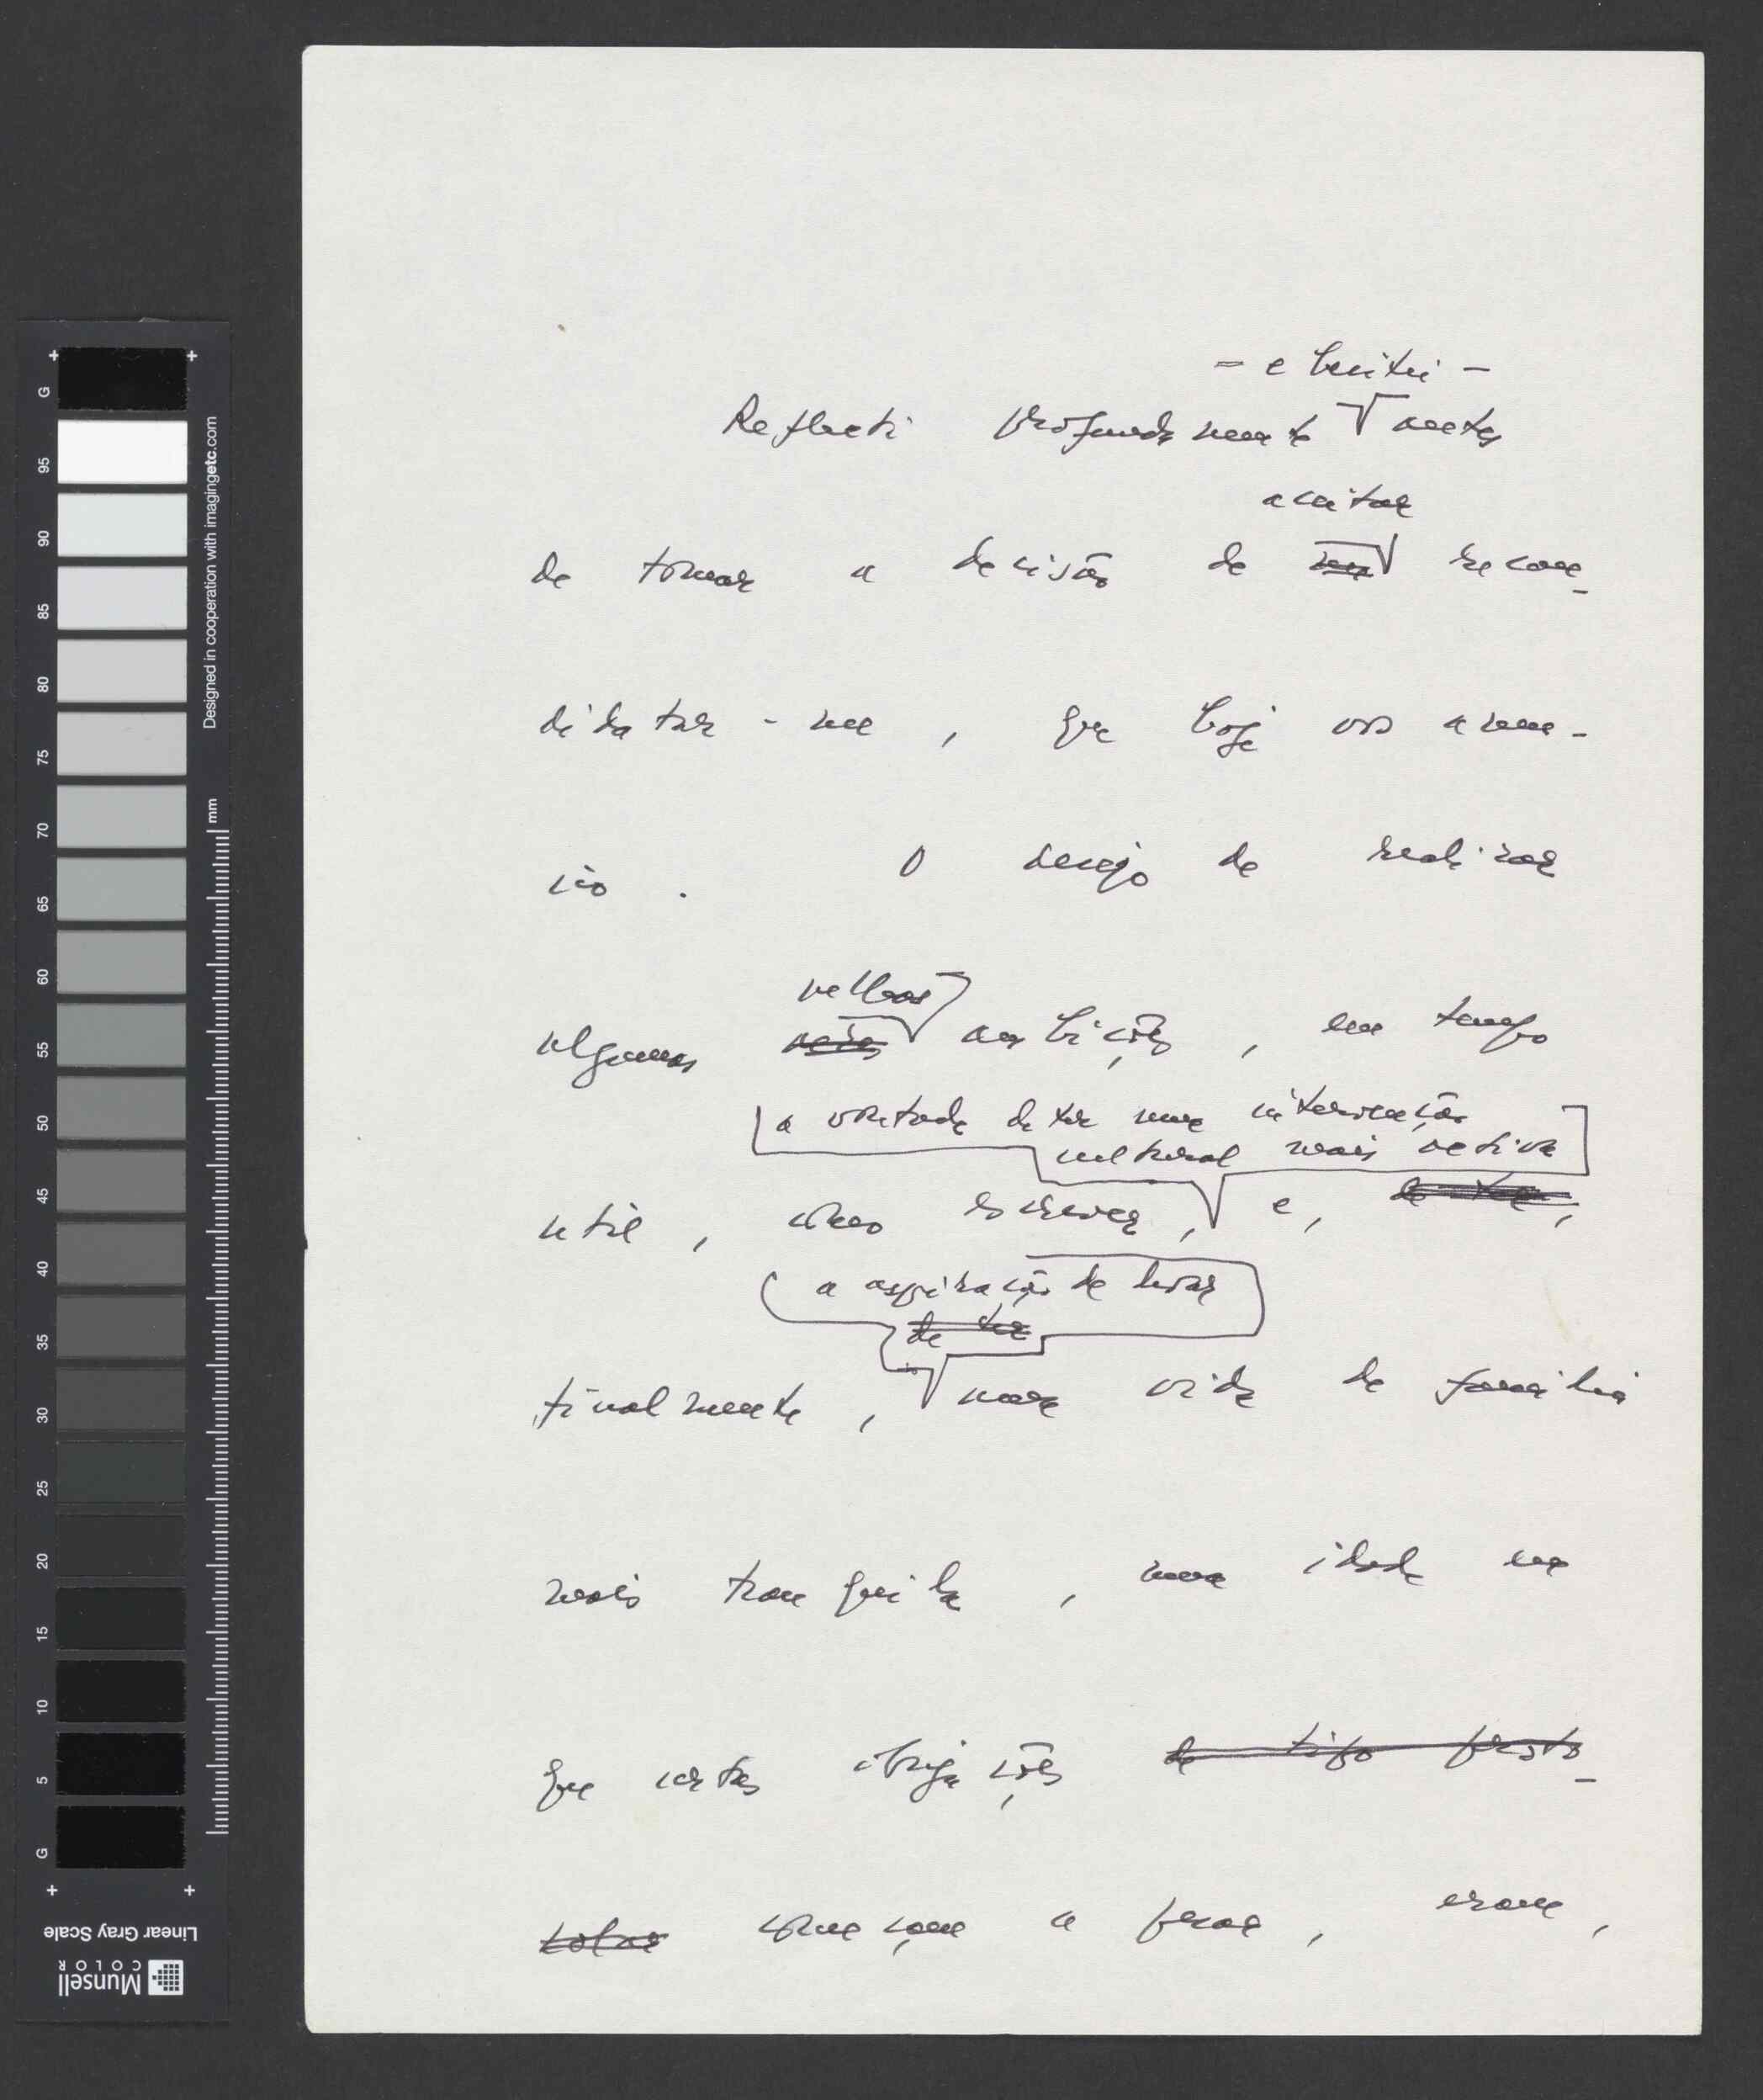 - e hesitei -
Reflecti profundamente antes
aceitar
de tomar a decisão de recan-
didatar-me, que hoje vos anun-
cio. O desejo de realizar
velhas
algumas ambições, em tempo
a vontade de ter uma intervenção
cultural mais activa
útil, como escrever, e, de ter,
a aspiração de levar
de ter
finalmente, uma vida de família
mais tranquila, numa idade em
que certas obrigações de tipo proto-
colar começam a pesar, eram,
G
95
90
85
80
75
70
65
60
55
50
45
40
35
30
25
20
15
10
5
G
Designed in cooperation with imagingetc.com
mm
Linear Gray Scale
Munsell
COLOR